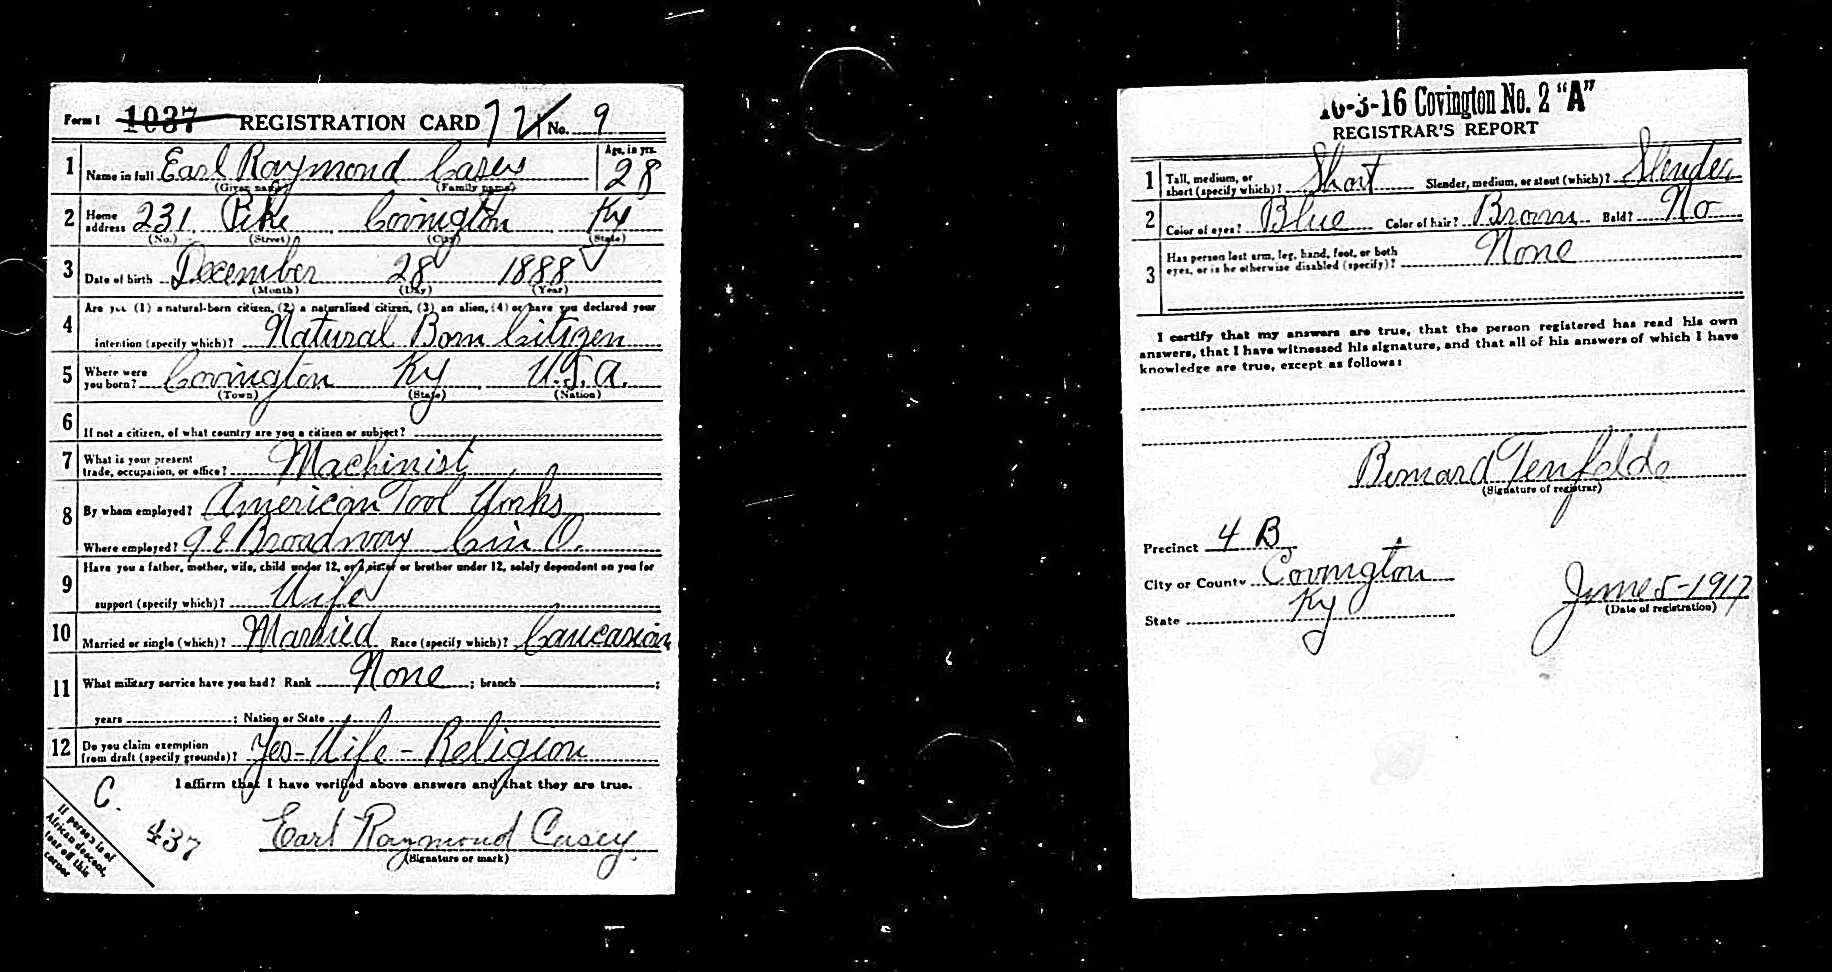 Form 1 1037 REGISTRATION CARD 721 No. 9
1 Name in full Earl Raymond Casey Age, in yrs. 28
(Given name) (Family name)
2 Home address 231 Pike Covington Ky
(No.) (Street) (City) (State)
3 Date of birth December 28 1888
(Month) (Day) (Year)
4 Are you (1) a natural-born citizen, (2) a naturalized citizen, (3) an alien, (4) or have you declared your
intention (specify which)? Natural Born Citizen
5 Where were you born? Covington Ky U.S.A.
(Town) (State) (Nation)
6 If not a citizen, of what country are you a citizen or subject?
7 What is your present trade, occupation, or office? Machinist
8 By whom employed? American Tool Works
Where employed? Broadway Cin O.
9 Have you a father, mother, wife, child under 12, or a sister or brother under 12, solely dependent on you for
support (specify which)? Wife
10 Married or single (which)? Married Race (specify which)? Caucasian
11 What military service have you had? Rank None ; branch ;
years ; Nation or State
12 Do you claim exemption from draft (specify grounds)? Yes-Wife-Religion
I affirm that I have verified above answers and that they are true.
C.
437
Earl Raymond Casey
(Signature or mark)
If person is of
African descent,
tear off this
corner
16-3-16 Covington No. 2 "A"
REGISTRAR'S REPORT
1 Tall, medium, or short (specify which)? Short Slender, medium, or stout (which)? Slender
2 Color of eyes? Blue Color of hair? Brown Bald? No
3 Has person lost arm, leg, hand, foot, or both eyes, or is he otherwise disabled (specify)? None
I certify that my answers are true, that the person registered has read his own
answers, that I have witnessed his signature, and that all of his answers of which I have
knowledge are true, except as follows:
Bernard Tenfelde
(Signature of registrar)
Precinct 4 B
City or County Covington
State Ky
June 5-1917
(Date of registration)